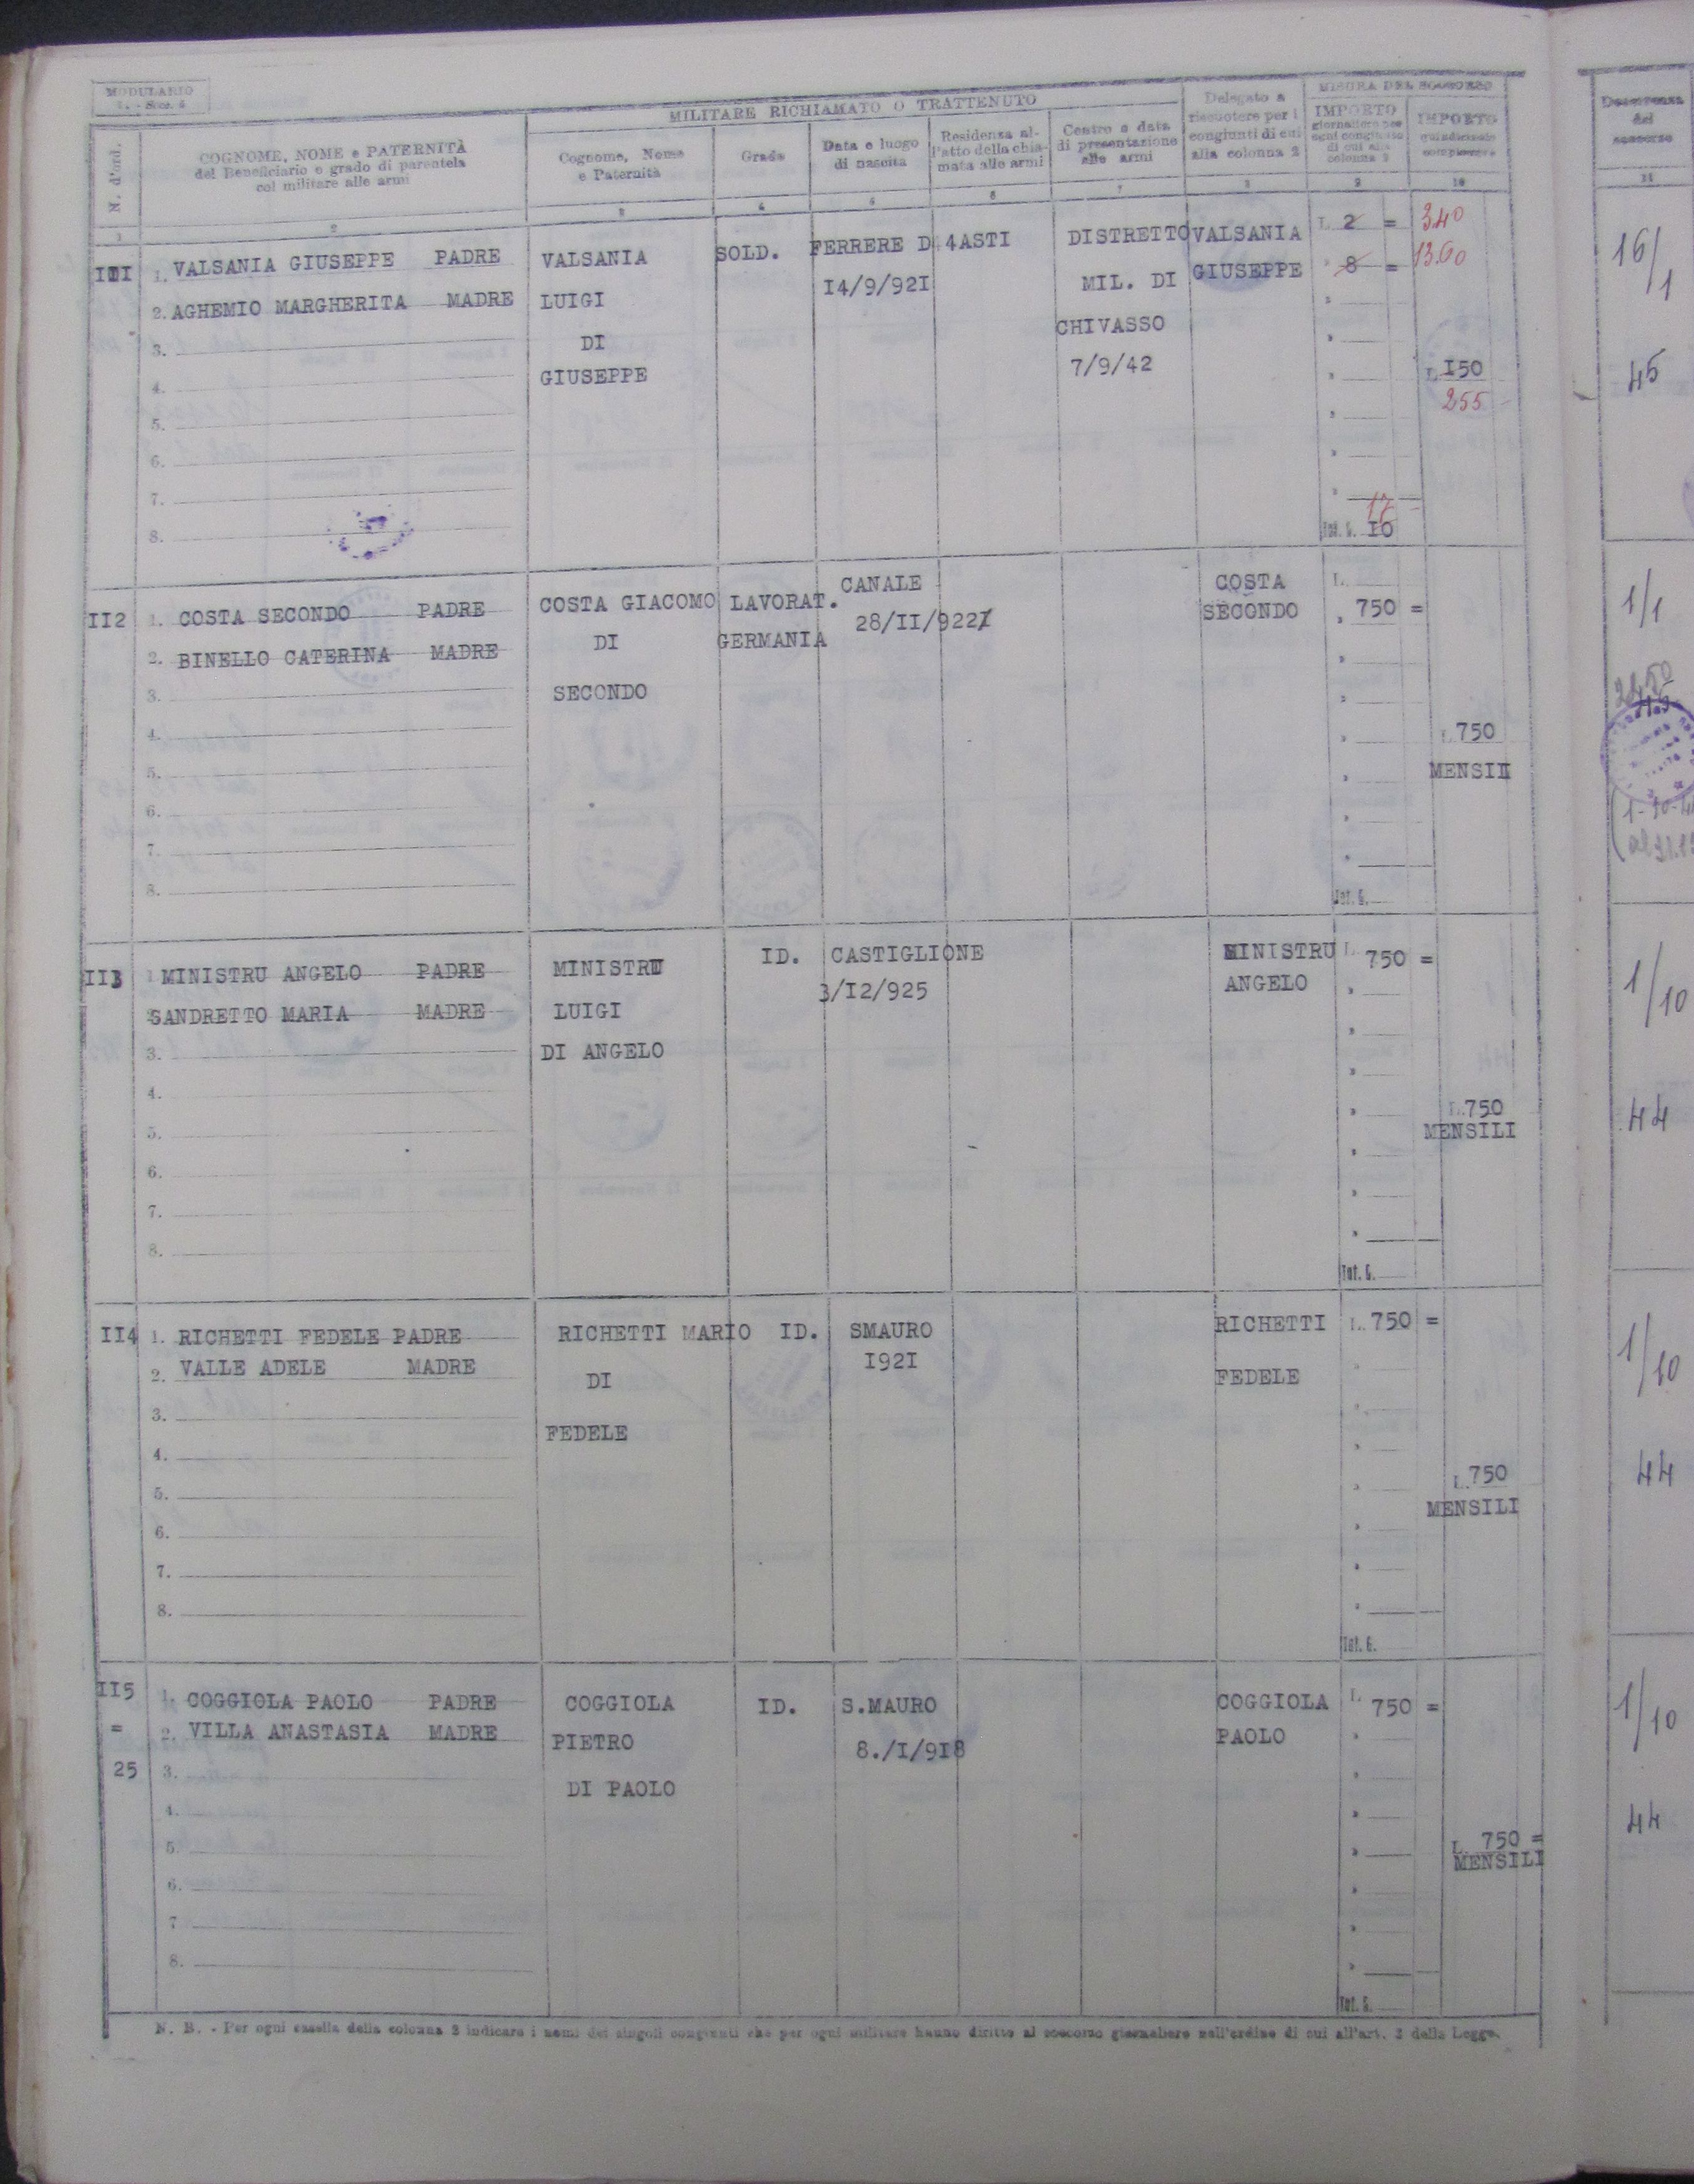 MODULARIO
MILITARE RICHIAMATO O TRATTENUTO
MISURA DEL SOCCORSO
N. d'ord.
COGNOME, NOME e PATERNITÀ
del Beneficiario e grado di parentela
col militare alle armi
Cognome, Nome
e Paternità
Grado
Data e luogo
di nascita
Residenza al-
l'atto della chia-
mata alle armi
Centro e data
di presentazione
alle armi
Delegato a
riscuotere per i
congiunti di cui
alla colonna 2
IMPORTO
giornaliero per
ogni congiunto
di cui alla
colonna 2
IMPORTO
quindicinale
complessivo
Decorrenza
del
soccorso
1 2 3 4 5 6 7 8 9 10 11
III
1. VALSANIA GIUSEPPE PADRE
2. AGHEMIO MARGHERITA MADRE
3.
4.
5.
6.
7.
8.
VALSANIA
LUIGI
DI
GIUSEPPE
SOLD.
FERRERE D'ASTI
I4/9/92I
DISTRETTO
MIL. DI
CHIVASSO
7/9/42
VALSANIA
GIUSEPPE
L. 2 = 3.40
" 8 = 13.60
L. I50
255
17
Tot. G. IO
16/1
45
II2
1. COSTA SECONDO PADRE
2. BINELLO CATERINA MADRE
3.
4.
5.
6.
7.
8.
COSTA GIACOMO
DI
SECONDO
LAVORAT.
GERMANIA
CANALE
28/II/922
COSTA
SECONDO
L.
" 750 =
L. 750
MENSILI
Tot. G.
1/1
II3
1. MINISTRU ANGELO PADRE
SANDRETTO MARIA MADRE
3.
4.
5.
6.
7.
8.
MINISTRU
LUIGI
DI ANGELO
ID.
CASTIGLIONE
3/I2/925
MINISTRU
ANGELO
L. 750 =
L. 750
MENSILI
Tot. G.
1/10
44
II4
1. RICHETTI FEDELE PADRE
2. VALLE ADELE MADRE
3.
4.
5.
6.
7.
8.
RICHETTI MARIO
DI
FEDELE
ID.
SMAURO
I92I
RICHETTI
FEDELE
L. 750 =
L. 750
MENSILI
Tot. G.
1/10
44
II5
=
25
1. COGGIOLA PAOLO PADRE
2. VILLA ANASTASIA MADRE
3.
4.
5.
6.
7
8.
COGGIOLA
PIETRO
DI PAOLO
ID.
S.MAURO
8./I/9I8
COGGIOLA
PAOLO
L. 750 =
L. 750 =
MENSILI
Tot. G.
1/10
44
N. B. - Per ogni casella della colonna 2 indicare i nomi dei singoli congiunti che per ogni militare hanno diritto al soccorso giornaliero nell'ordine di cui all'art. 2 della Legge.